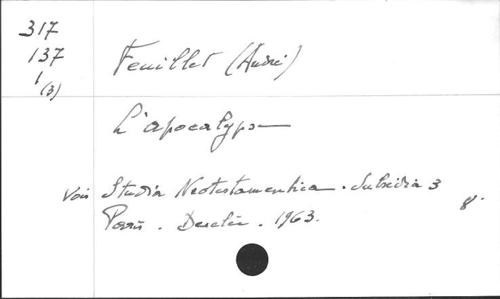 317
137
1
(3)
Feuillet (André)
L'apocalypse
Voir Studia Neotestamentica. Subsidia 3
Paris. Desclée. 1963. 8°